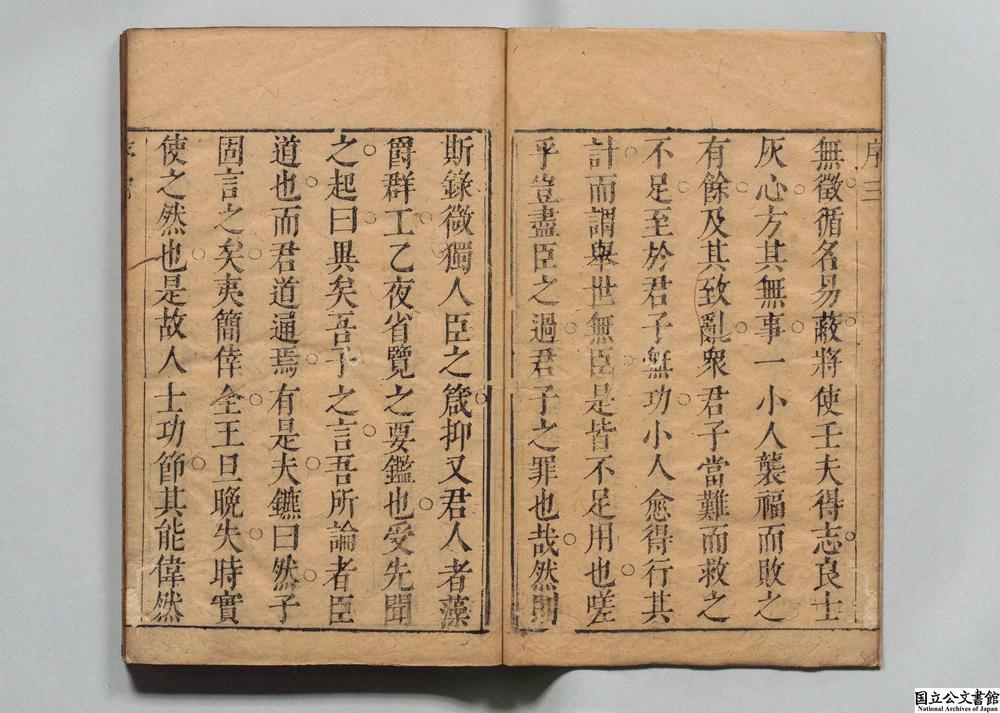 序三
無徵循名易蔽將使壬夫得志良士
灰心方其無事一小人襲福而敗之
有餘及其致亂衆君子當難而救之
不足至於君子無功小人愈得行其
計而謂舉世無臣是皆不足用也嗟
乎豈盡臣之過君子之罪也哉然則
斯錄微獨人臣之箴抑又君人者藻
爵群工乙夜省覽之要鑑也受先聞
之起曰異矣吾子之言吾所論者臣
道也而君道逼焉有是夫鑣曰然子
固言之矣夷簡倖全王旦晚失時實
使之然也是故人士功節其能偉然
序
国立公文書館
National Archives of Japan